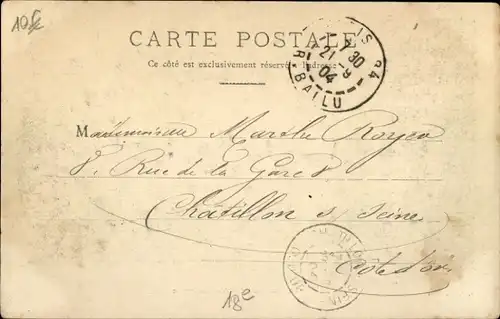 10 fc
CARTE POSTALE
Ce côté est exclusivement réservé à l'adresse
IS 84
7 30
21 - 9
04
R. BALLU
Mademoiselle Marthe Royer
8. Rue de la Gare 8
Châtillon s/ Seine
Côte d'or
18e